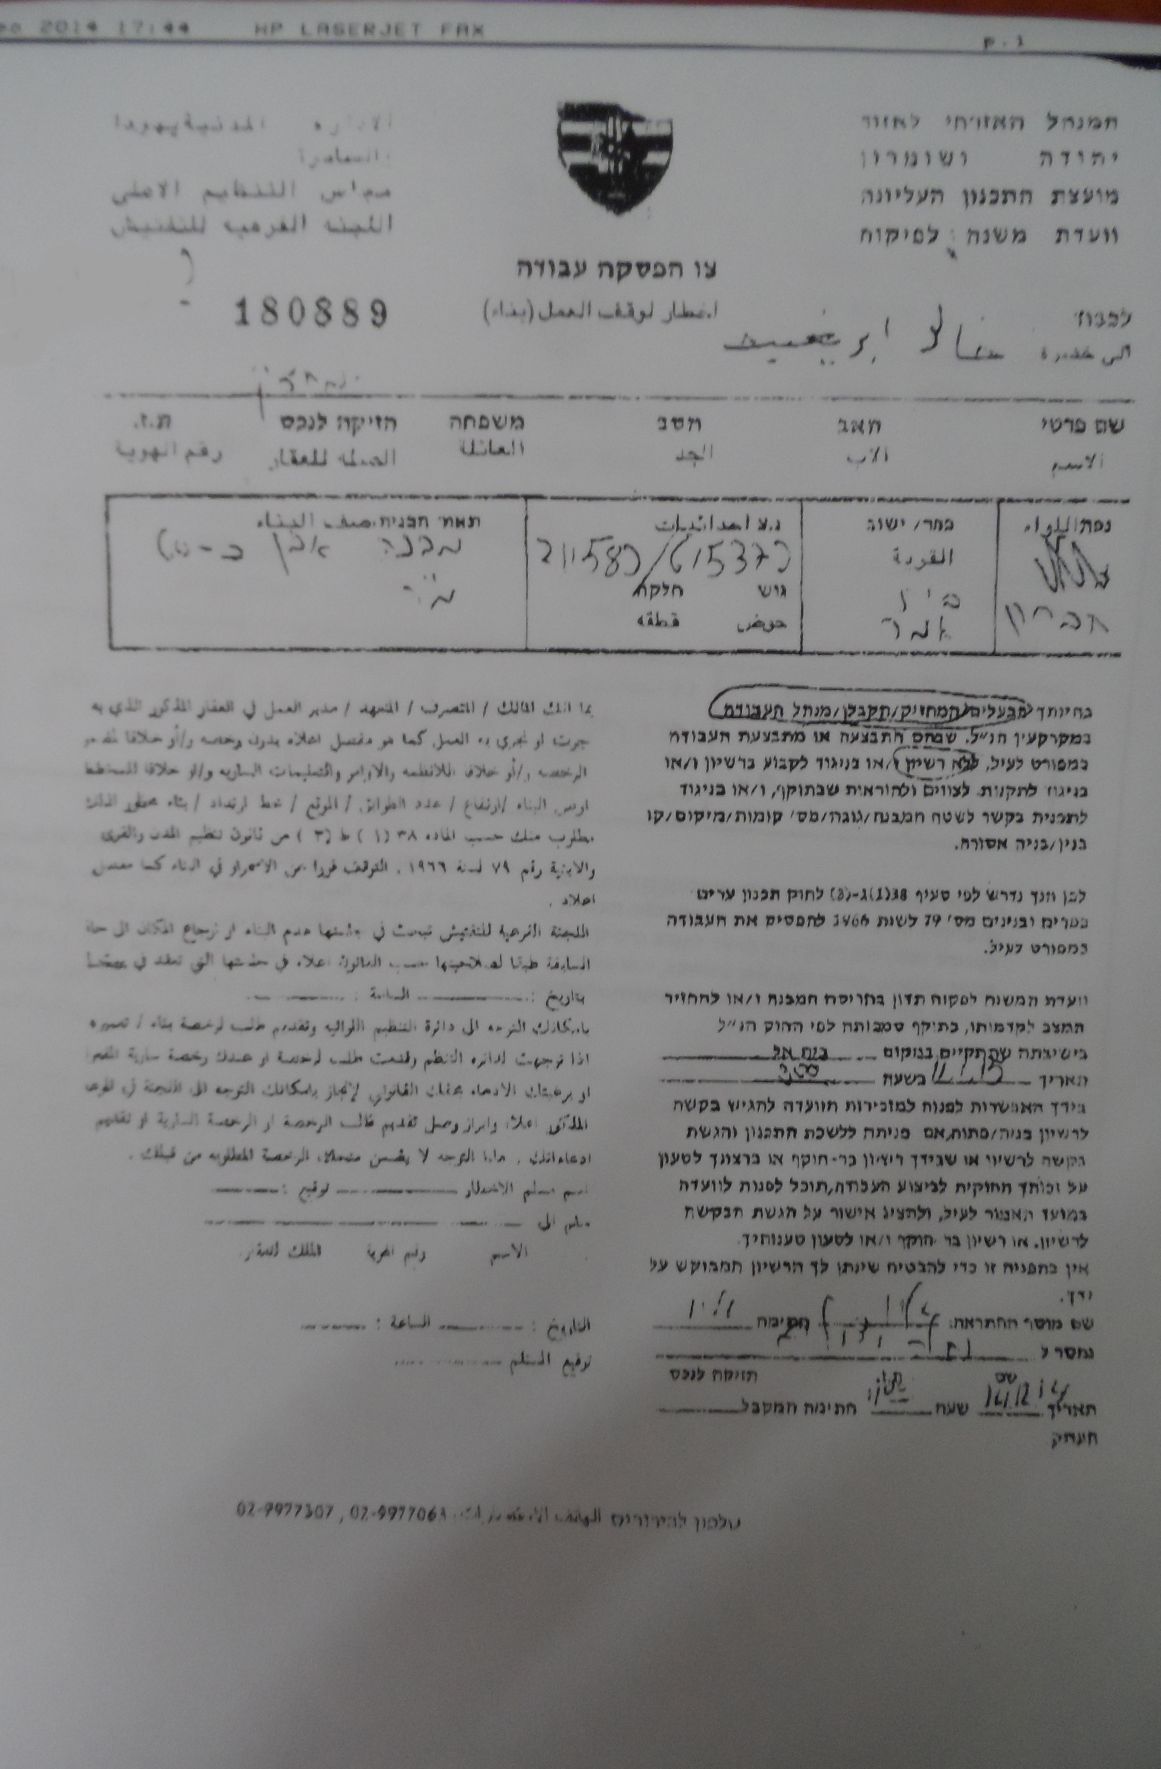 2014 17:44 HP LASERJET FAX p.1
המנהל האזרחי לאזור
יהודה ושומרון
מועצת התכנון העליונה
וועדת משנה לפיקוח
الادارة المدنية يهودا
والسامرة
مجلس التنظيم الاعلى
اللجنة الفرعية للتفتيش
צו הפסקה עבודה
اخطار لوقف العمل (بناء)
180889
לכבוד
الى حضرة
שם פרטי האב הסב משפחה הזיקה לנכס ת.ז.
الاسم الاب الجد العائلة الصلة للعقار رقم الهوية
נפה اللواء
חברון
כפר/ ישוב
القرية
בית
אמר
נ.צ احداثيات
גוש חלקה
حوض قطعة
תאור הבניה وصف البناء
מבנה אבן כ-
מ"ר
בהיותך הבעלים/המחזיק/הקבלן/מנהל העבודה
במקרקעין הנ"ל, שבהם התבצעה או מתבצעת העבודה
כמפורט לעיל, ללא רשיון ו/או בניגוד לקבוע ברשיון ו/או
בניגוד לתקנות, לצווים ולהוראות שבתוקף, ו/או בניגוד
לתכנית בקשר לשטח המבנה/גובה/מס' קומות/מיקום/קו
בנין/בניה אסורה.
לכן הנך נדרש לפי סעיף 38(1)ג-(3) לחוק תכנון ערים
כפרים ובנינים מס' 79 לשנת 1966 להפסיק את העבודה
כמפורט לעיל.
וועדת המשנה לפקוח תדון בהריסת המבנה ו/או להחזיר
המצב לקדמותו, בתוקף סמכותה לפי החוק הנ"ל
בישיבתה שתתקיים במקום בית אל
תאריך בשעה
בידך האפשרות לפנות למזכירות הוועדה להגיש בקשה
לרשיון בניה/פתוח, אם פניתה ללשכת התכנון והגשת
בקשה לרשיון או שבידך רישיון בר-תוקף או ברצונך לטעון
על זכותך החוקית לביצוע העבודה, תוכל לפנות לוועדה
במועד האמור לעיל, ולהציג אישור על הגשת הבקשה
לרשיון, או רשיון בר תוקף ו/או לטעון טענותיך.
אין בהפניה זו כדי להבטיח שינתן לך הרשיון המבוקש על
ידך.
שם מוסר ההתראה: חתימה
נמסר ל
שם ת.ז. הזיקה לנכס
תאריך שעה חתימת המקבל
העתק
بما انك المالك / المتصرف / المتعهد / مدير العمل في العقار المذكور الذي به
جرت او تجري به العمل كما هو مفصل اعلاه بدون رخصه و/أو خلافا
الرخصه و/أو خلافا للانظمه والاوامر والتعليمات الساريه و/او خلافا للمخطط
ارض البناء /ارتفاع / عدد الطوابق / الموقع / خط ارتداد / بناء محظور لذلك
مطلوب منك حسب المادة ٣٨ (١) ط (٣) من قانون تنظيم المدن والقرى
والابنية رقم ٧٩ لسنة ١٩٦٦ . التوقف فورا من الاستمرار في البناء كما مفصل
اعلاه .
اللجنة الفرعية للتفتيش تبحث في جلستها هدم البناء او ارجاع المكان الى حالة
السابقة طبقا لصلاحيتها حسب القانون اعلاه في جلستها التي تعقد في
بتاريخ : الساعة :
بامكانك التوجه الى دائرة التنظيم اللوائيه وتقديم طلب لرخصة بناء / تعميره
اذا توجهت لدائرة التنظيم وقدمت طلب لرخصة او عندك رخصة سارية المفعول
او برغبتك الادعاء بحقك القانوني لإنجاز بامكانك التوجه الى اللجنة في الموعد
المذكور اعلاه وابراز وصل تقديم طلب الرخصة او الرخصة السارية او تقديم
ادعاءاتك . هذا التوجه لا يضمن منحك الرخصة المطلوبه من قبلك .
اسم مسلم الاخطار توقيع :
سلم الى
الاسم رقم الهوية الملك للعقار
التاريخ : الساعة :
توقيع المستلم
טלפון לבירורים الهاتف للاستفسارات: 02-9977063 , 02-9977307